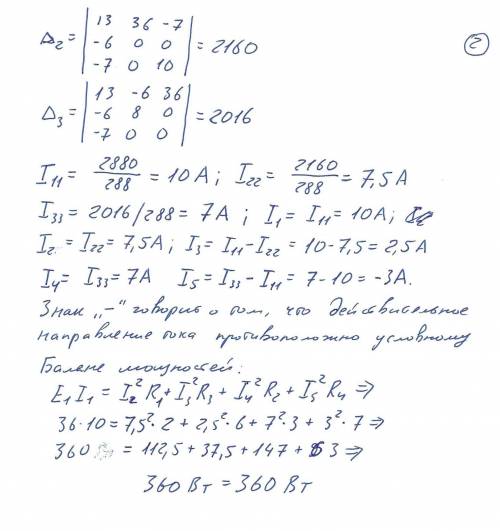 Δ₂ = | 13 36 -7 |
| -6 0 0 | = 2160
| -7 0 10 |
②
Δ₃ = | 13 -6 36 |
| -6 8 0 | = 2016
| -7 0 0 |
I₁₁ = 2880/288 = 10 А; I₂₂ = 2160/288 = 7,5 А
I₃₃ = 2016/288 = 7А; I₁ = I₁₁ = 10А;
I₂ = I₂₂ = 7,5 А; I₃ = I₁₁ - I₂₂ = 10 - 7,5 = 2,5 А
I₄ = I₃₃ = 7А I₅ = I₃₃ - I₁₁ = 7 - 10 = -3А.
Знак „-" говорит о том, что действительное
направление тока противоположно условному
Баланс мощностей:
E₁I₁ = I₂²R₁ + I₃²R₃ + I₄²R₂ + I₅²R₄ ⇒
36·10 = 7,5²·2 + 2,5²·6 + 7²·3 + 3²·7 ⇒
360 = 112,5 + 37,5 + 147 + 63 ⇒
360 Вт = 360 Вт